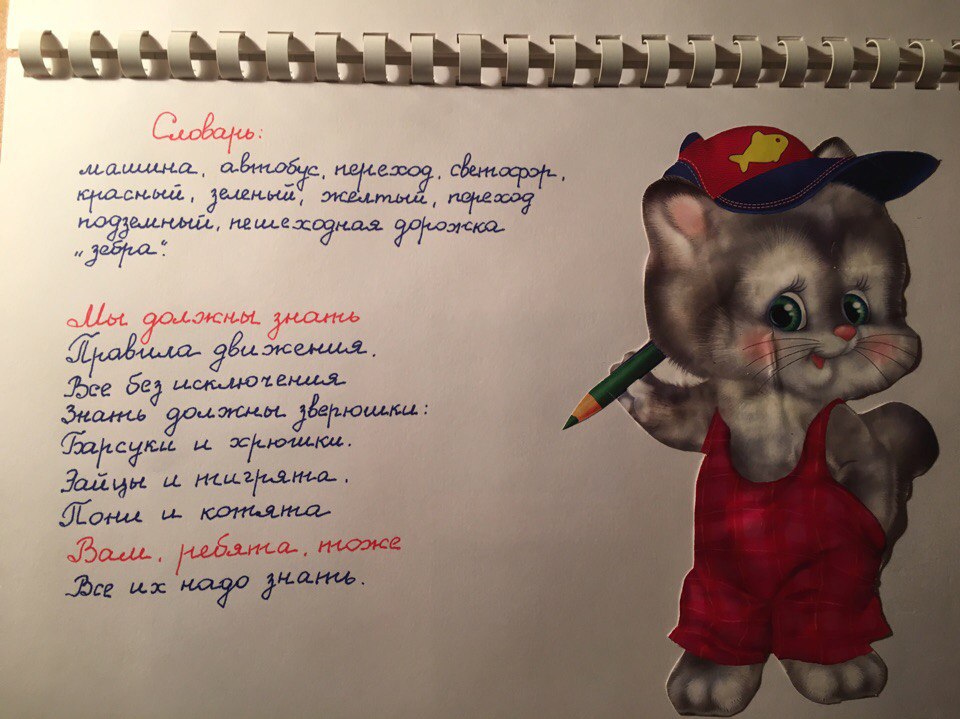 Словарь:
машина, автобус, переход, светофор,
красный, зеленый, желтый, переход
подземный, пешеходная дорожка
„зебра".
Мы должны знать
Правила движения.
Все без исключения
Знать должны зверюшки:
Барсуки и хрюшки.
Зайцы и тигрята.
Пони и котята
Вам, ребята, тоже
Все их надо знать.